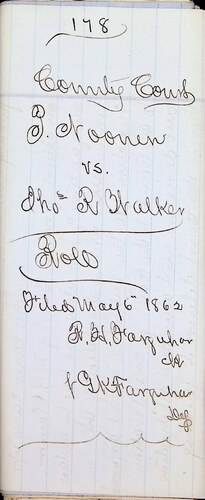 178
County Court
P. Noonen
vs.
Thos R Walker
Filed May 6" 1862
R. H. Farquhar
Clk
J G K Farquhar